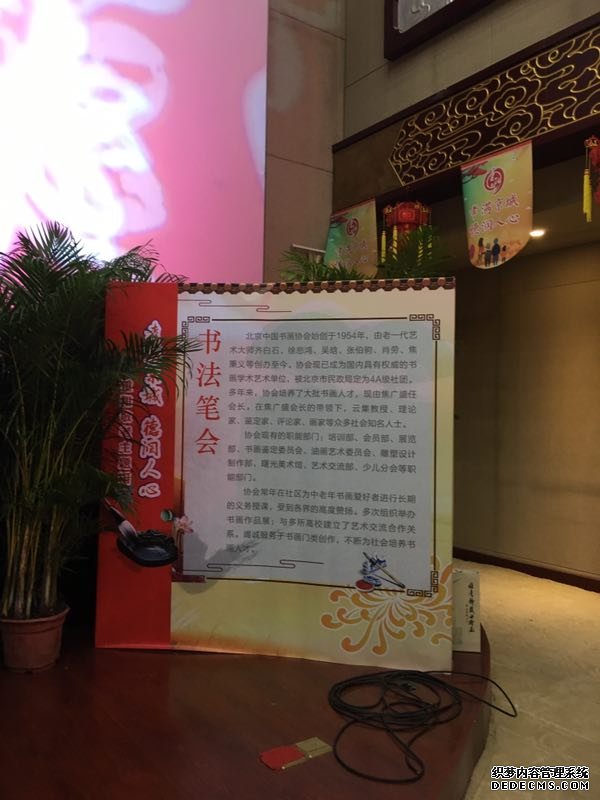 书满京城
德润人心
书法笔会
北京中国书画协会始创于1954年，由老一代艺
术大师齐白石、徐悲鸿、吴晗、张伯驹、肖劳、焦
秉义等创办至今。协会现已成为国内具有权威的书
画学术艺术单位，被北京市民政局定为4A级社团。
多年来，协会培养了大批书画人才，现由焦广盛任
会长。在焦广盛会长的带领下，云集教授、理论
家、鉴定家、评论家、画家等众多社会知名人士。
协会现有的职能部门；培训部、会员部、展览
部、书画鉴定委员会、油画艺术委员会、雕塑设计
制作部、曙光美术馆、艺术交流部、少儿分会等职
能部门。
协会常年在社区为中老年书画爱好者进行长期
的义务授课，受到各界的高度赞扬。多次组织举办
书画作品展；与多所高校建立了艺术交流合作关
系。竭诚服务于书画门类创作，不断为社会培养书
画人才。
德润人心
织梦内容管理系统
DEDECMS.COM